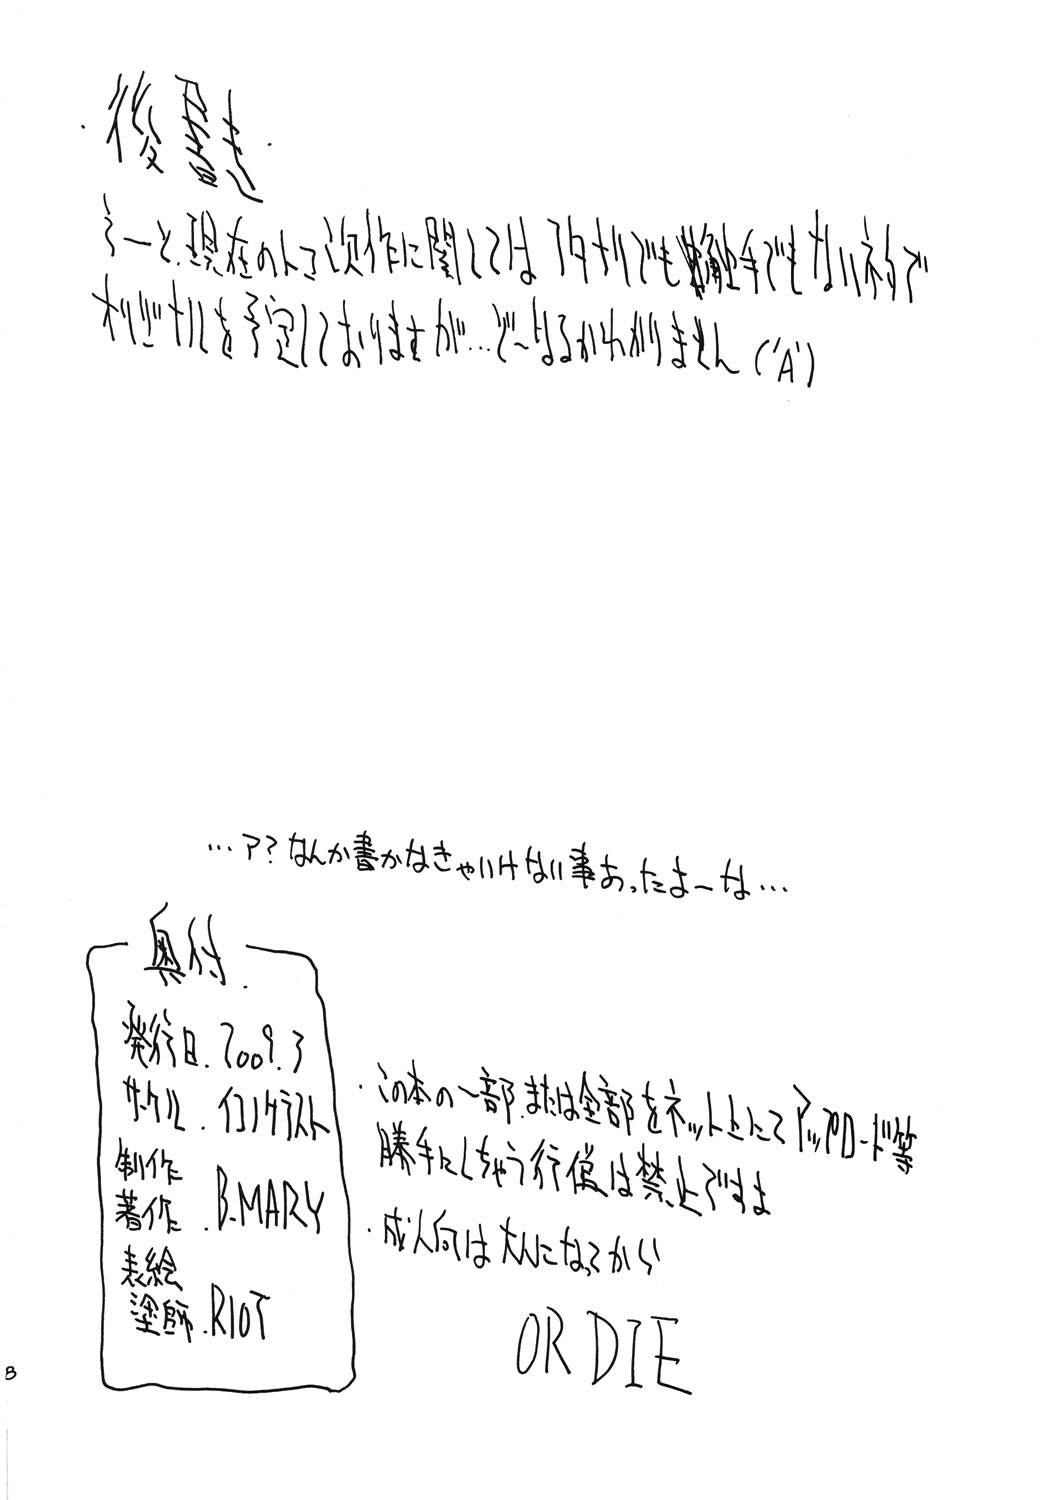 ・後書き・
えーと、現在のトコ次作に関しては フタナリでも触手でもないネタで
オリジナルを予定しておりますが…ど〜なるかわかりません('A`)
…ア?なんか書かなきゃいけない事あったよーな…
奥付.
発行日.2009.3
サークル.イコノクラスト
制作
著作 .B.MARY
表絵
塗師.RIOT
・この本の一部、または全部をネット上にてアップロード等
勝手にしちゃう行為は禁止ですよ
・成人向は大人になってから
OR DIE